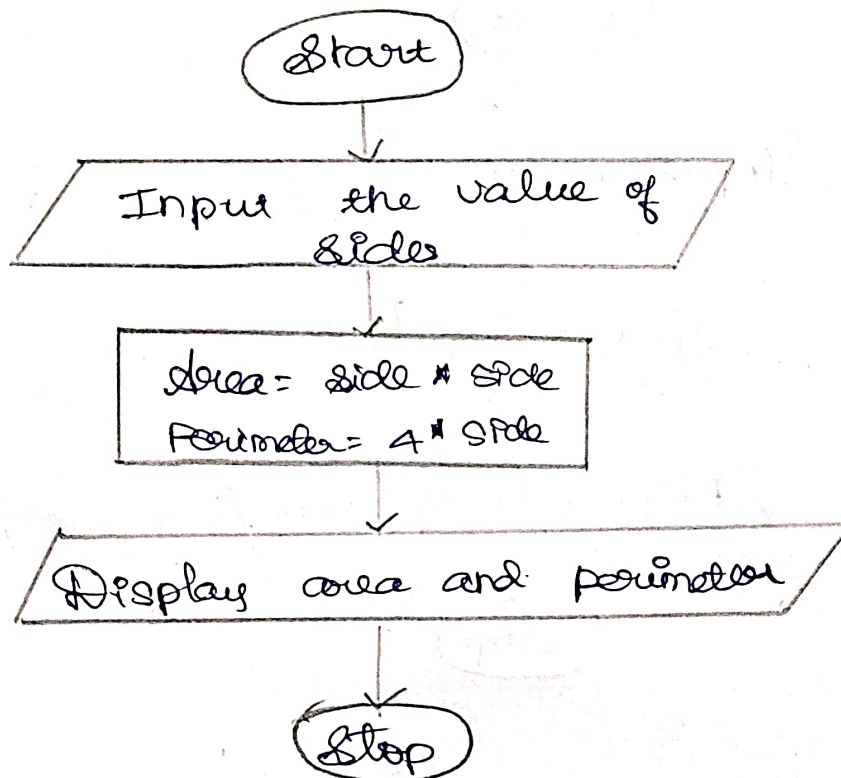 Start
Input the value of
sides
Area = side * side
Perimeter = 4 * side
Display area and perimeter
Stop